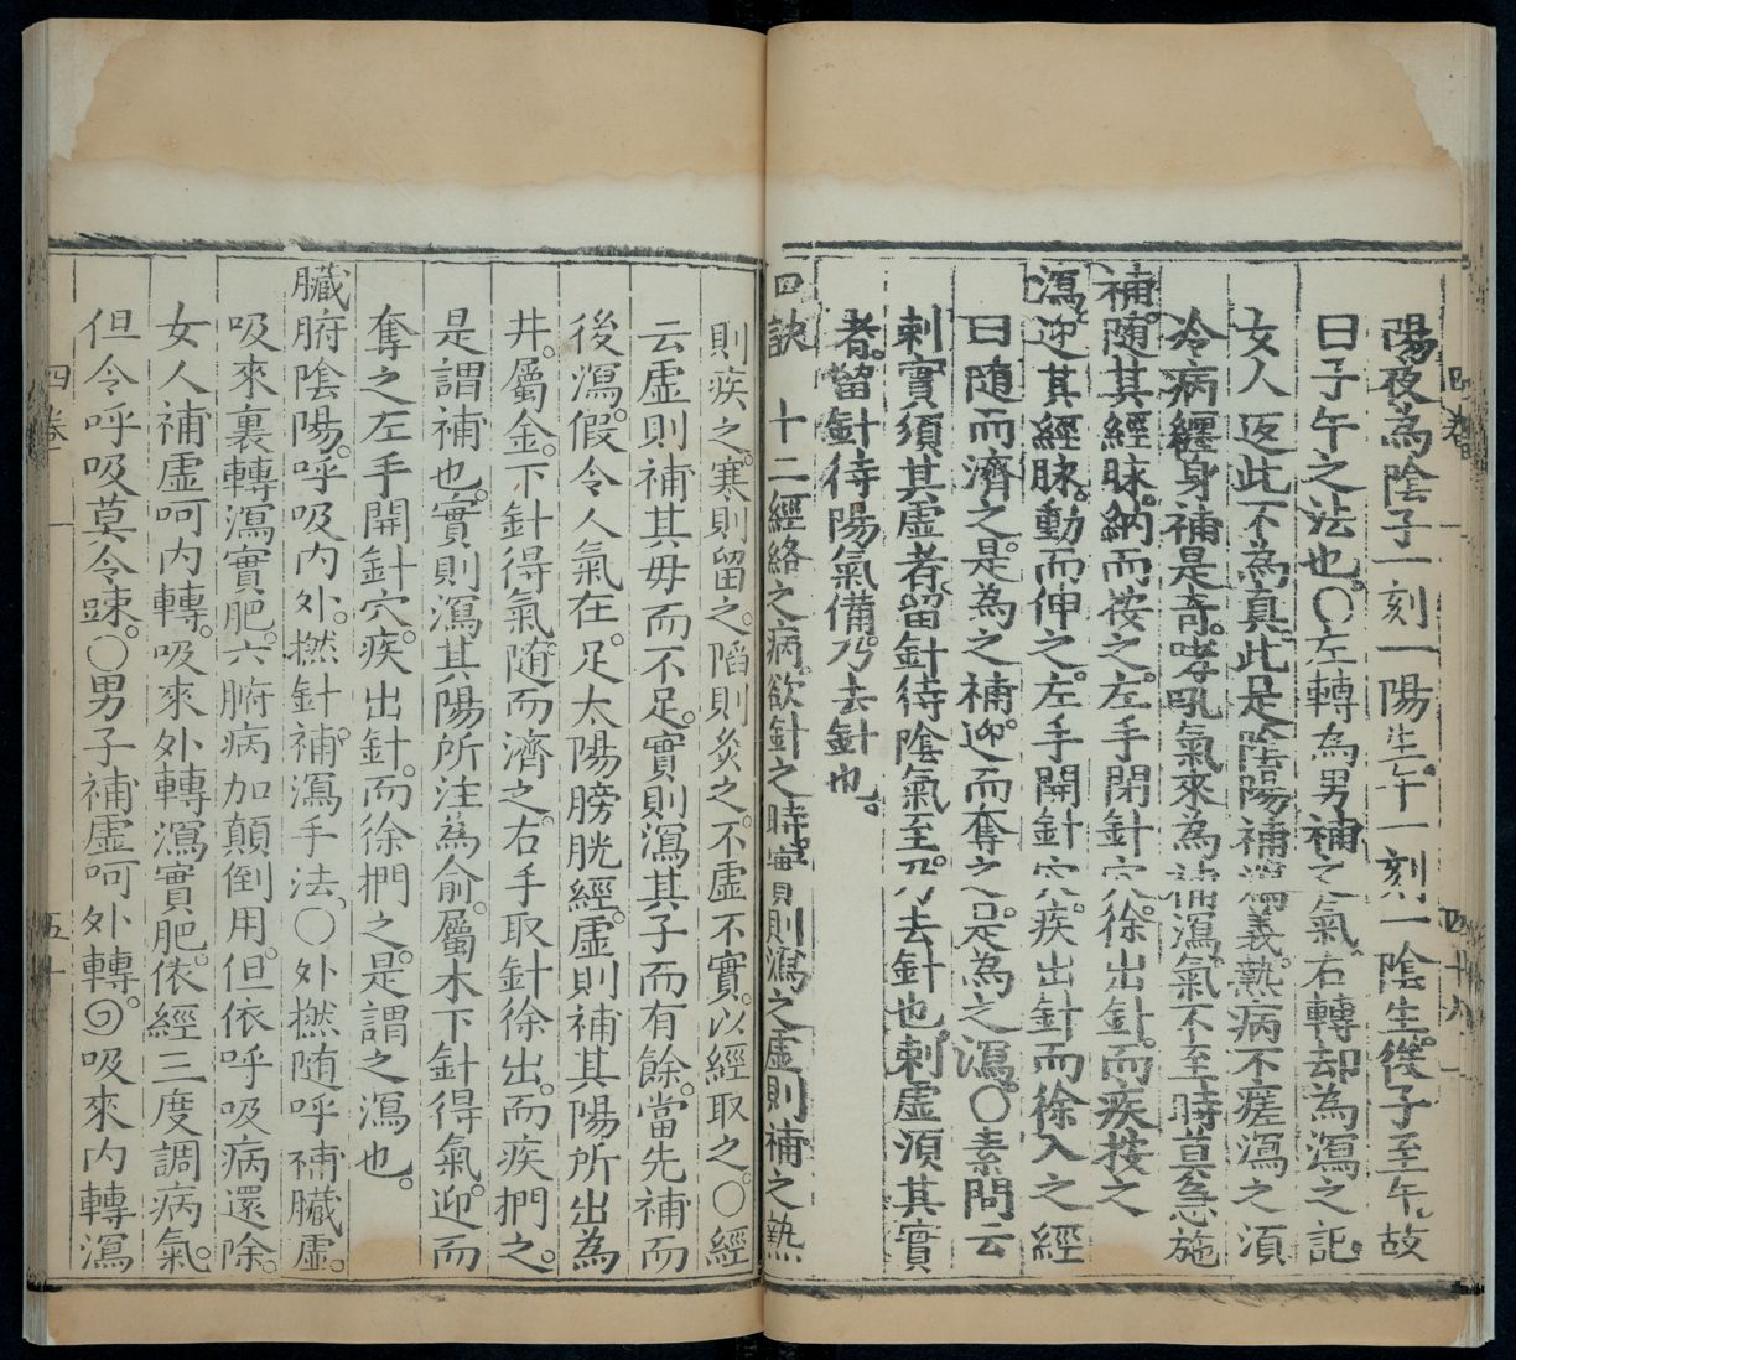 陽夜為陰子一刻一陽生午一刻一陰生從子至午故
曰子午之法也○左轉為男補之氣右轉却為瀉之記
女人返此不為真此是陰陽補瀉義熱病不瘥瀉之須
冷病纏身補是奇哮吼氣來為補瀉氣不至時莫急施
補随其經脉納而按之左手閉針穴徐出針而疾按之
瀉迎其經脉動而伸之左手開針穴疾出針而徐入之經
曰随而濟之是為之補迎而奪之是為之瀉○素問云
刺實須其虛者留針待陰氣至乃去針也刺虛須其實
者留針待陽氣備乃去針也
四訣 十二經絡之病欲針之時實則瀉之虛則補之熱
則疾之寒則留之陷則灸之不虛不實以經取之○經
云虛則補其毋而不足實則瀉其子而有餘當先補而
後瀉假令人氣在足太陽膀胱經虛則補其陽所出為
井屬金下針得氣随而濟之右手取針徐出而疾捫之
是謂補也實則瀉其陽所注為俞屬木下針得氣迎而
奪之左手開針穴疾出針而徐捫之是謂之瀉也
臟腑陰陽呼吸內外撚針補瀉手法○外撚随呼補臟虛
吸來裏轉瀉實肥六腑病加顛倒用但依呼吸病還除
女人補虛呵內轉吸來外轉瀉實肥依經三度調病氣
但令呼吸莫令踈○男子補虛呵外轉吸來內轉瀉
四卷
五十